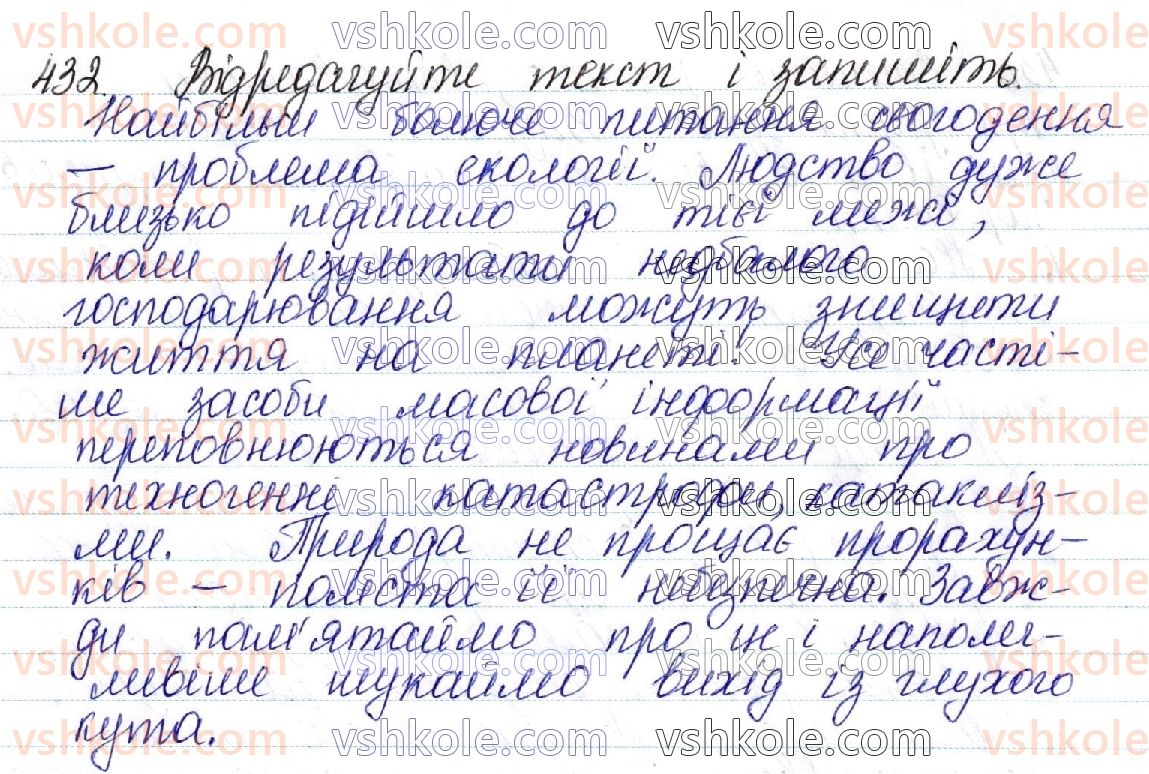 432. Відредагуйте текст і запишіть.
Найбільш болюче питання сьогодення
– проблема екології. Людство дуже
близько підійшло до тієї межі,
коли результати недбалого
господарювання можуть знищити
життя на планеті! Усе часті-
ше засоби масової інформації
переповнюються новинами про
техногенні катастрофи, катакліз-
ми. Природа не прощає прорахун-
ків – помста її небезпечна. Завж-
ди пам'ятаймо про це і наполег-
ливіше шукаймо вихід із глухого
кута.
vshkole.com